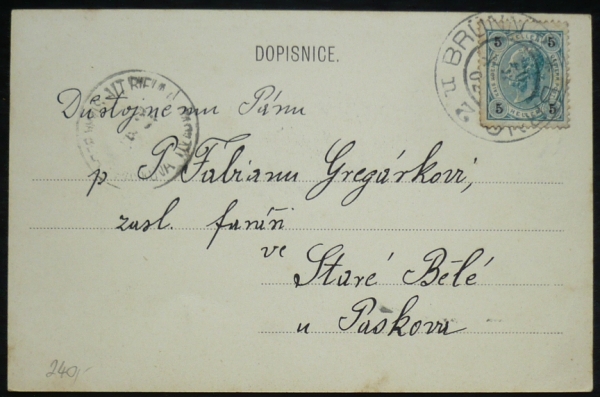 DOPISNICE.
5 5
5 5
BRÜNN
Důstojnému Pánu
P. Fabianu Gregárkovi,
zasl. faráři
ve
Staré Bělé
u Paskova
240,-